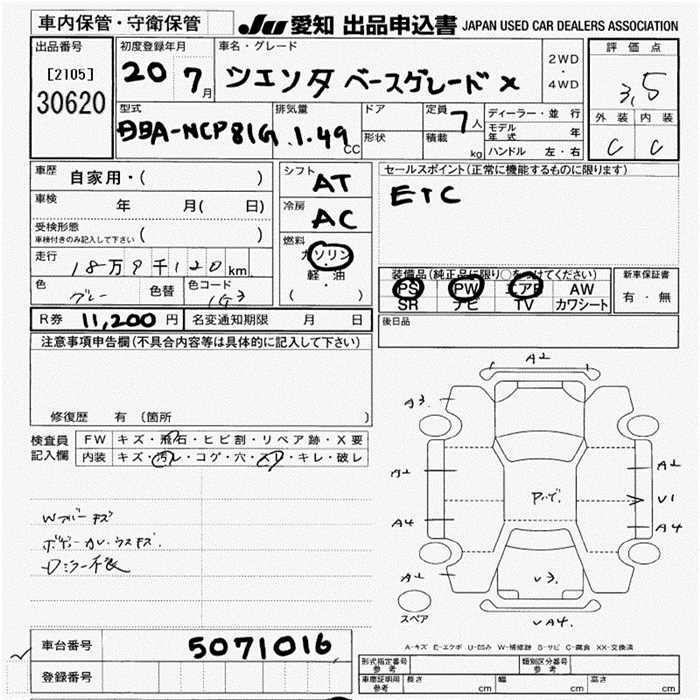 車内保管・守衛保管
JU 愛知 出品申込書 JAPAN USED CAR DEALERS ASSOCIATION
出品番号
[2105]
30620
初度登録年月
20 7月
車名・グレード
シエンタ ベースグレード X
2WD
・
4WD
評価点
3.5
外装 内装
C C
型式
DBA-NCP81G
排気量
1.49 CC
ドア
形状
定員 7人
積載 kg
ディーラー・並行
モデル年式 年
ハンドル 左・右
車歴 自家用・( )
車検 年 月( 日)
受検形態 ( )
車検付きのみ記入して下さい
走行 18万9千120km
色 グレー 色替 色コード 1G3
シフト AT
冷房 AC
燃料
ガソリン
・
軽・油
( )
セールスポイント(正常に機能するものに限ります)
ETC
装備品(純正品に限り○をつけてください)
PS PW エアB AW
SR ナビ TV カワシート
新車保証書
有・無
R券 11,200円 名変通知期限 月 日
後日品
注意事項申告欄(不具合内容等は具体的に記入して下さい)
修復歴 有 (箇所 )
検査員記入欄
FW キズ・飛石・ヒビ割・リペア跡・X要
内装 キズ・汚レ・コゲ・穴・スレ・キレ・破レ
Wカバーキズ
ボデーカレ・ウスキズ
Dミラー不良
A2
A3
A2
A2
V1
A4
A4
A2
V3.
VA4.
スペア
A-キズ E-エクボ U-凹み W-補修跡 S-サビ C-腐食 XX-交換済
車台番号 5071016
登録番号
型式指定番号 参考
類別区分番号 参考
車庫証明用 参考 長さ cm 幅 cm 高さ cm